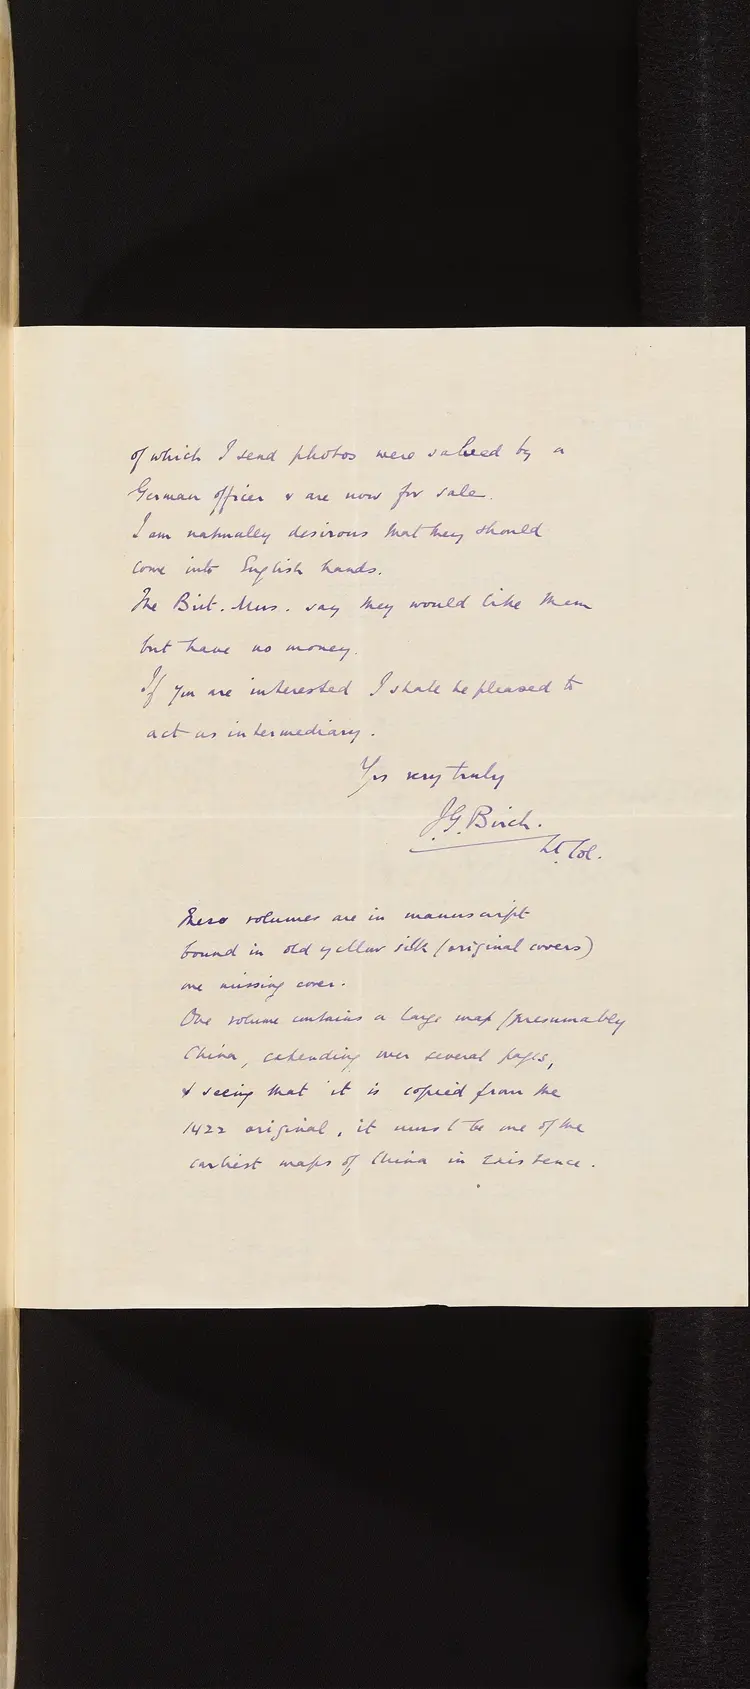 of which I send photos were salved by a
German officer & are now for sale.
I am naturally desirous that they should
come into English hands.
The Brit. Mus. say they would like them
but have no money.
If you are interested I shall be pleased to
act as intermediary.
Yrs very truly
J.G. Birch.
Lt. Col.
These volumes are in manuscript
bound in old yellow silk (original covers)
one missing cover.
One volume contains a large map (presumably
China, extending over several pages,
& seeing that it is copied from the
1422 original, it must be one of the
earliest maps of China in existence.